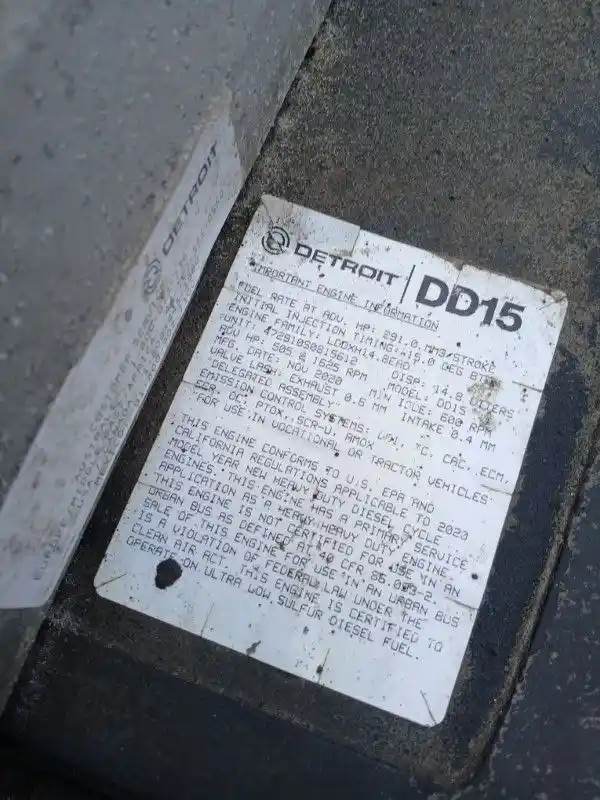 DETROIT | DD15
IMPORTANT ENGINE INFORMATION
FUEL RATE AT ADV. HP: 291.0 MM3/STROKE
INITIAL INJECTION TIMING: 15.0 DEG BTC
ENGINE FAMILY: LDDXH14.8EAD DISP: 14.8 LITERS
UNIT: 472910S0815612 MODEL: DD15
ADV HP: 505 @ 1625 RPM MIN IDLE: 600 RPM
MFG. DATE: NOV 2020
VALVE LASH: EXHAUST 0.6 MM INTAKE 0.4 MM
DELEGATED ASSEMBLY
EMISSION CONTROL SYSTEMS: TC, CAC, ECM,
OC, PTOX, SCR-U, AMOX
FOR USE IN VOCATIONAL OR TRACTOR VEHICLES.
THIS ENGINE CONFORMS TO U.S. EPA AND
CALIFORNIA REGULATIONS APPLICABLE TO 2020
MODEL YEAR NEW HEAVY DUTY DIESEL CYCLE
ENGINES. THIS ENGINE HAS A PRIMARY SERVICE
APPLICATION AS A HEAVY HEAVY DUTY ENGINE.
THIS ENGINE IS NOT CERTIFIED FOR USE IN AN
URBAN BUS AS DEFINED AT 40 CFR 86.093-2.
SALE OF THIS ENGINE FOR USE IN AN URBAN BUS
IS A VIOLATION OF FEDERAL LAW UNDER THE
CLEAN AIR ACT. THIS ENGINE IS CERTIFIED TO
OPERATE ON ULTRA LOW SULFUR DIESEL FUEL.
DETROIT